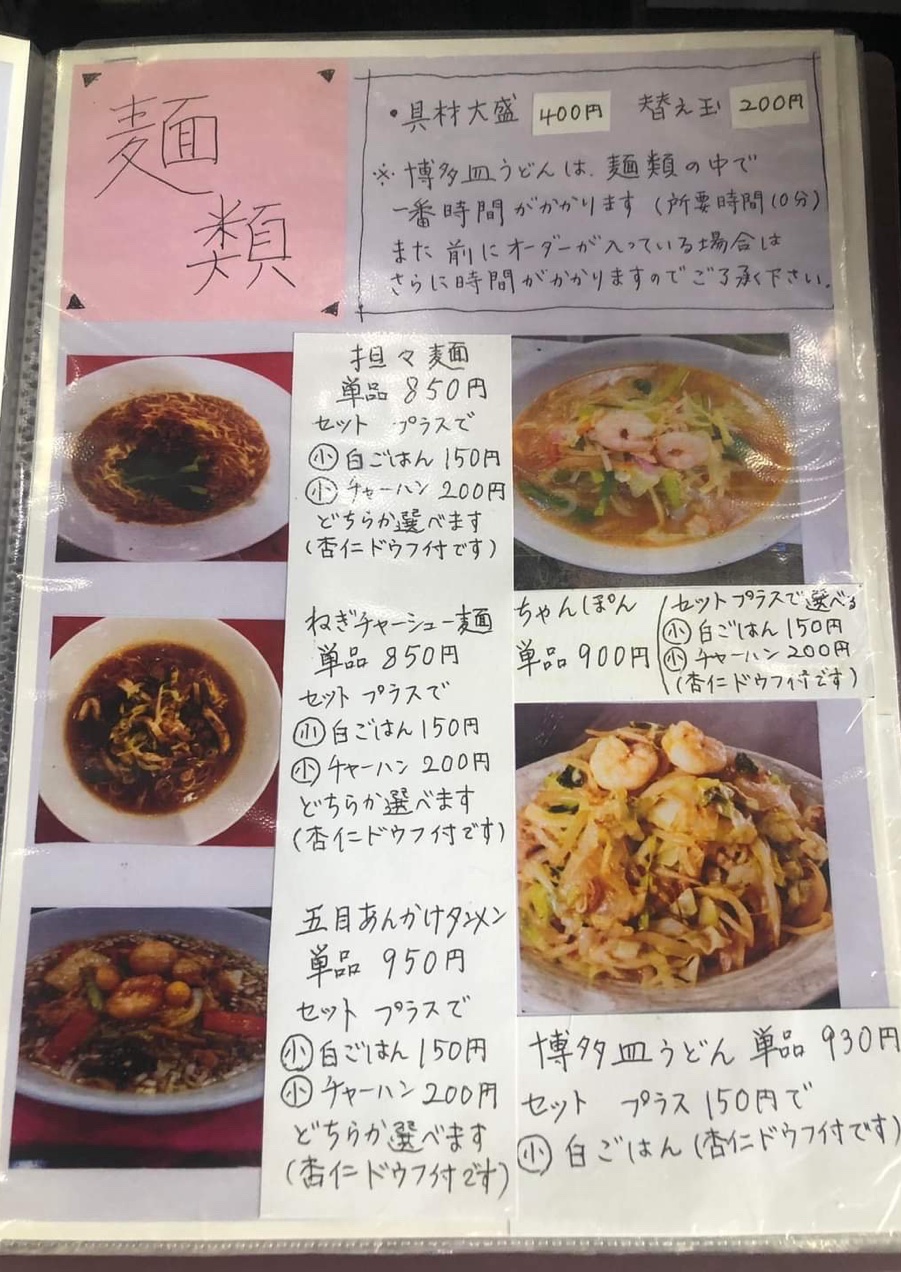 麺類
・具材大盛 400円 替え玉 200円
※博多皿うどんは、麺類の中で
一番時間がかかります(所要時間10分)
また前にオーダーが入っている場合は
さらに時間がかかりますのでご了承下さい。
担々麺
単品 850円
セット プラスで
小 白ごはん 150円
小 チャーハン 200円
どちらか選べます
(杏仁ドウフ付です)
ねぎチャーシュー麺
単品 850円
セット プラスで
小 白ごはん 150円
小 チャーハン 200円
どちらか選べます
(杏仁ドウフ付です)
五目あんかけタンメン
単品 950円
セット プラスで
小 白ごはん 150円
小 チャーハン 200円
どちらか選べます
(杏仁ドウフ付です)
ちゃんぽん
単品 900円
セットプラスで選べる
小 白ごはん 150円
小 チャーハン 200円
(杏仁ドウフ付です)
博多皿うどん 単品 930円
セット プラス 150円で
小 白ごはん (杏仁ドウフ付です)